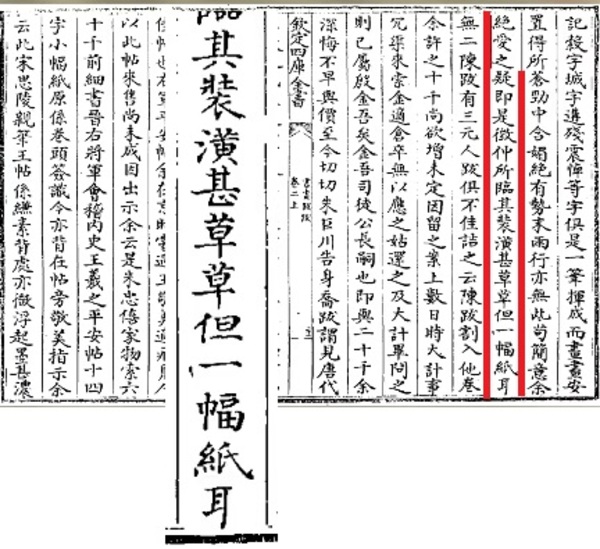 記接字城字遒殘震悼等字俱是一筆揮成而畫畫安
置得所蒼勁中含媚絕有勢末兩行亦無此苟簡意余
絕愛之疑即是徵仲所臨其裝潢甚草草但一幅紙耳
無二陳跋有三元人跋俱不佳詰之云陳跋割入他卷
余許之十千尚欲增未定因留之案上數日時大計事
冗渠來索金適倉卒無以應之姑還之及大計畢問之
則已屬殷金吾矣金吾司徒公長嗣也即與二十千余
深悔不早與價至今切切朱巨川告身喬跋謂見唐代
欽定四庫全書
書畫跋跋
卷二上
臨其裝潢甚草草但一幅紙耳
以此帖來售尚未成因出示余云是朱忠僖家物索六
十千前細書晉右將軍會稽內史王羲之平安帖十四
字小幅紙原係卷頭簽識今亦背在帖旁敬美指示余
云此宋思陵親筆王帖係縑素背處亦微浮起墨甚濃